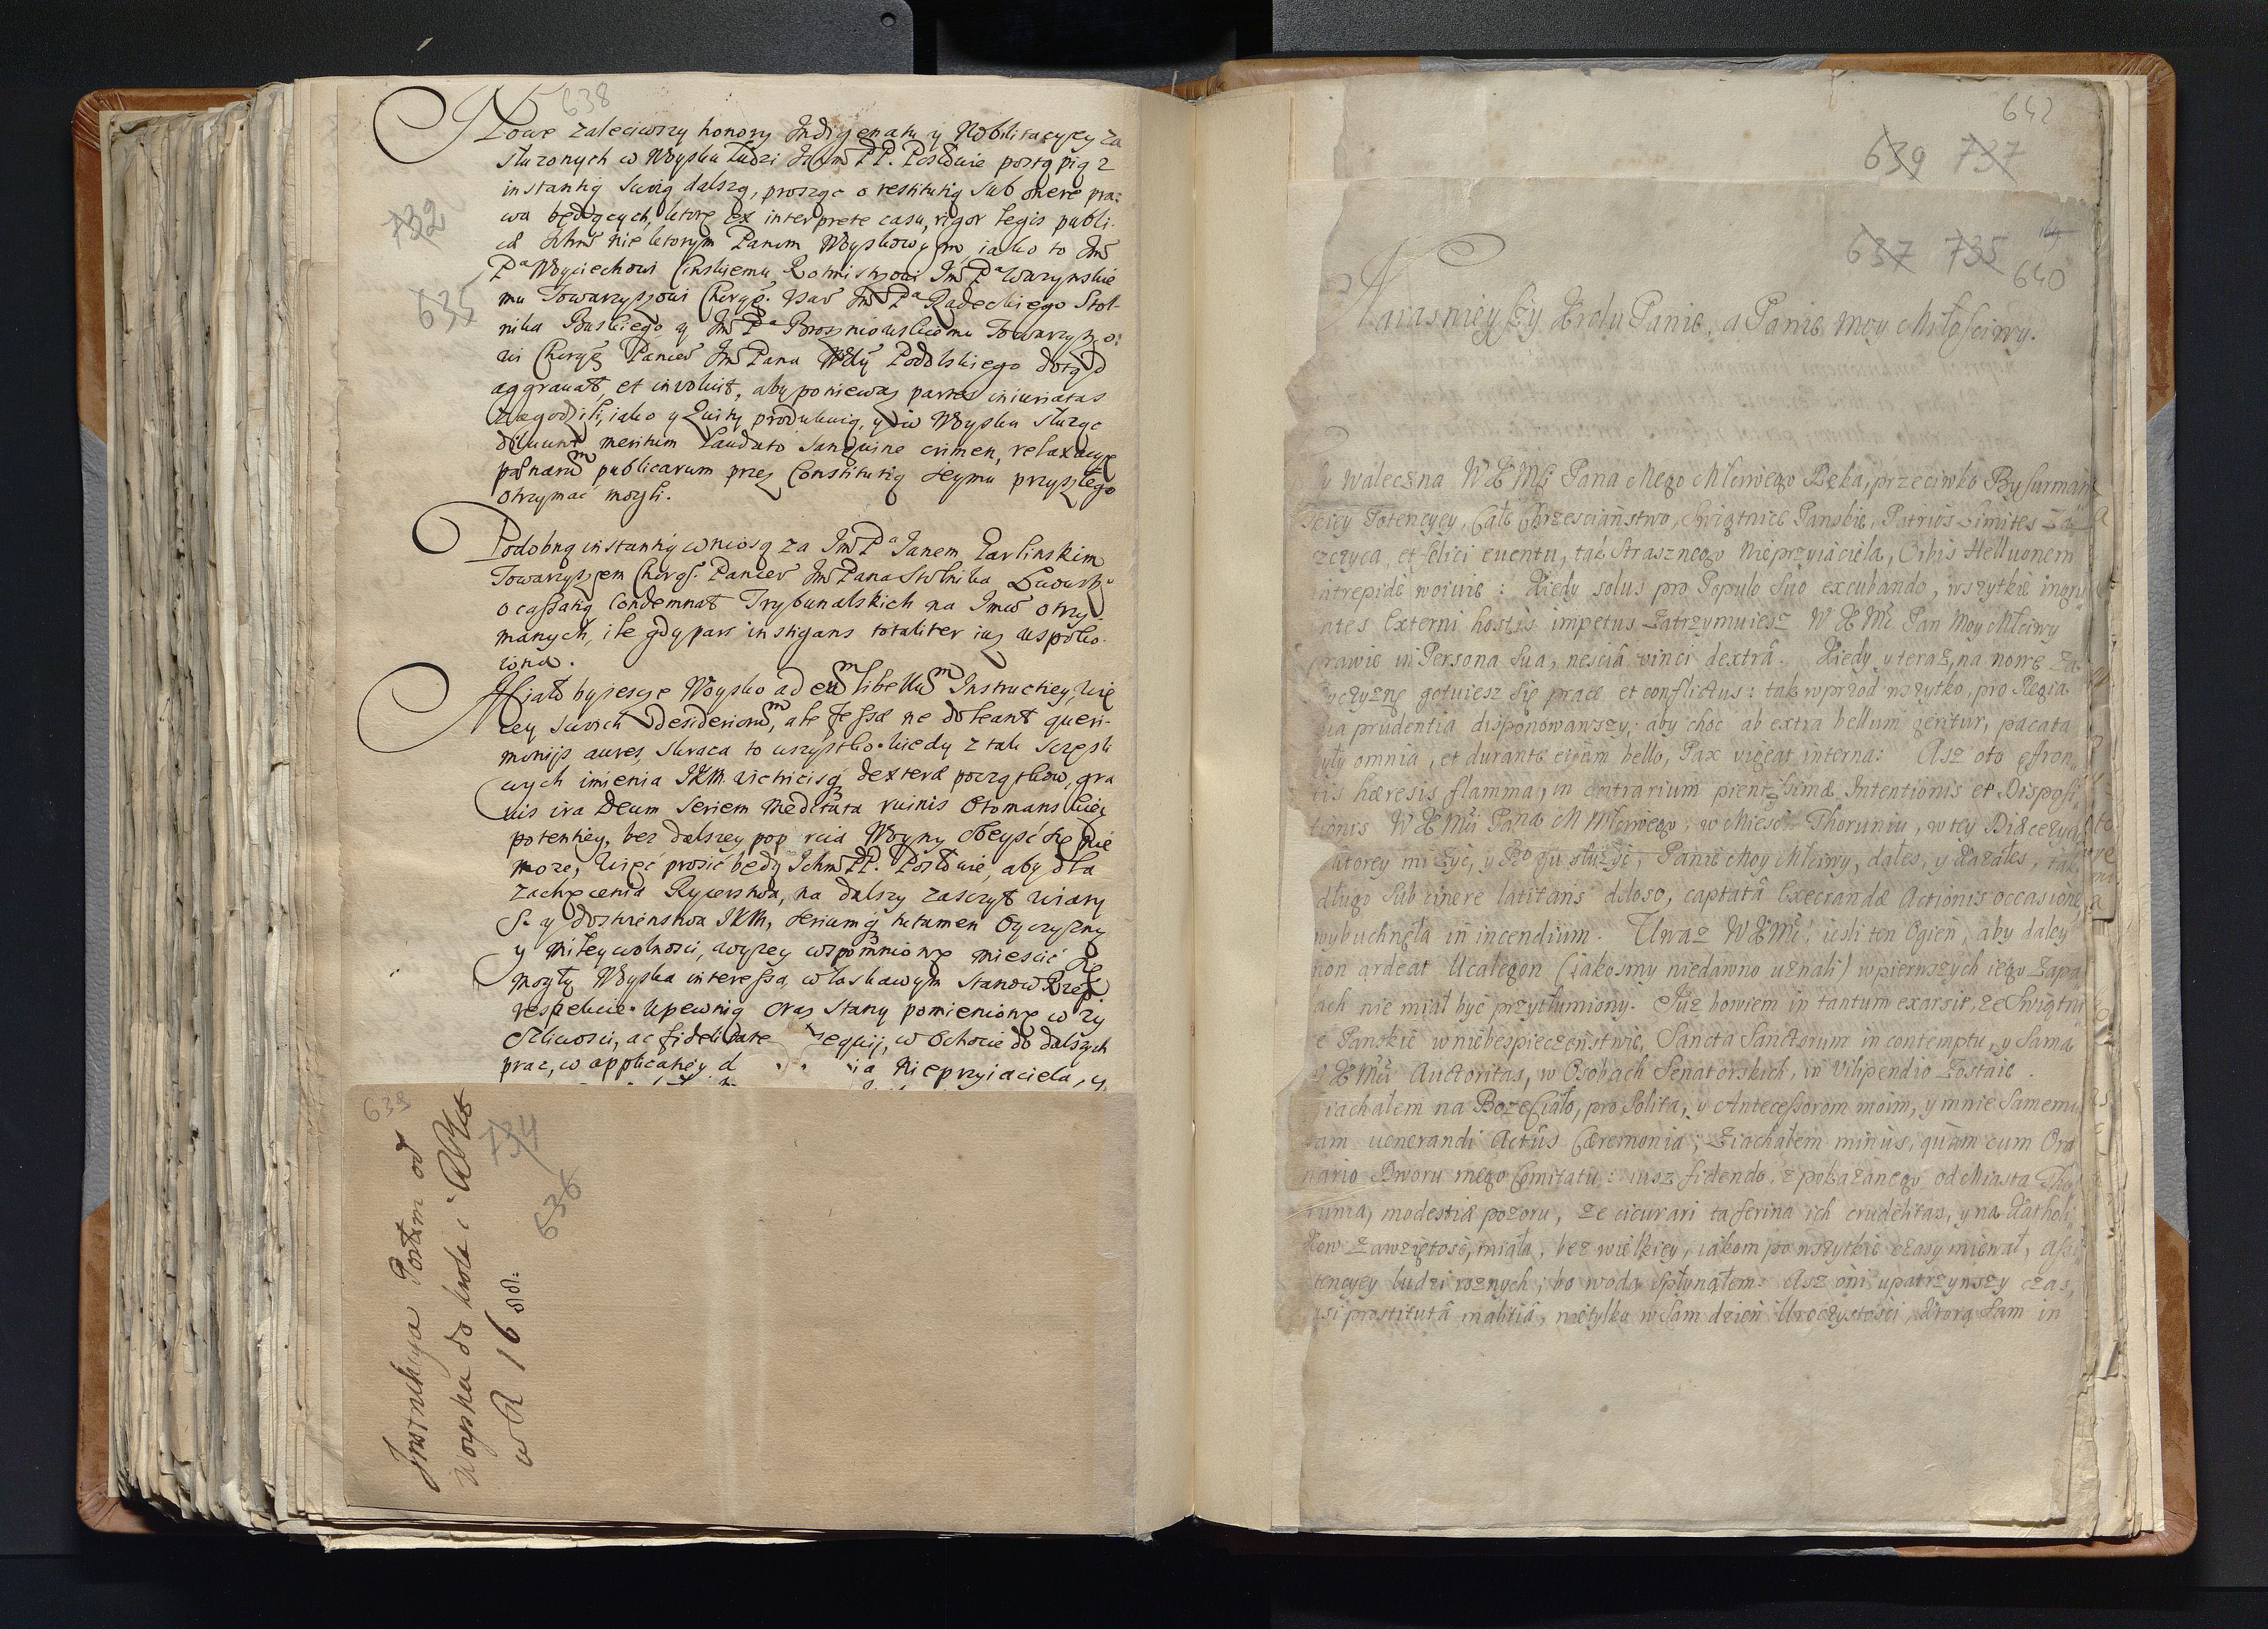 638
Nowe zaleciwszy honory Indigenatu y Nobilitacyey za
służonych w Woysku ludzi Ichmć PP. Posłowie postąpią z
instantią swoią dalszą, prosząc o restitutią sub onere pra:
wa będących, ktore ex interprete casu, rigor legis publi:
cæ Ichmć niektorym Panom Woyskowym, iako to Imć
Pa Woyciechowi Cinskiemu Rotmistrzowi Imć Pa Warzynskie
mu Towarzyszowi Chorąg. Usar Imć Pa Zadeckiego Stol-
nika Buskiego y Imć Pa Brosniowskiemu Towarzyszo:
wi Chorąg Pancer Imć Pana Wdy Podolskiego dotąd
aggrauat, et inuoluit, aby poniewasz partes iniuriatas
zagodzili, iako y Quity produkuią, y w Woysku służąc
diluunt meritum laudato sanguine crimen, relaxacyę
pænarum publicarum przez Constitutią Seymu przyszłego
otrzymać mogli.
Podobną instantią wniosą za Imć Pa Janem Karlinskim
Towarzyszem Chorąg. Pancer Imć Pana Stolnika
o cassatią Condemnat Trybunalskich na Imć otrzy
manych, ile gdy pars instigans totaliter iusz uspoko-
iona.
Miało by ieszcze Woysko ad eum libellum Instructiey, wię
cey swoich desideriorum, ale fessæ ne doleant queri-
monijs aures, skraca to wszystko. kiedy z tak szczęśli
wych imienia JKM victricisq dexteræ początkow, gra
uis ira Deum seriem meditata ruinis Otomanskiey
potentiey, bez dalszey poparcia Woyny obeyść się nie
moze, Więc prosić będą Ichmć PP. Posłowie, aby dla
zachęcenia Rycerstwa, na dalszy zaszczyt wiary
S. y dostoienstwa JKM, seriumq tutamen Oyczyzny
y miłey wolności, wyzey wspomnione mieścić się
mogły Woyska interessa, w łaskawym Stanow Rzeptey
respekcie. Upewnią oraz Stany pomienione w zy
czliwości, ac fidelitate sequij, w ochocie do dalszych
prac, w applicatiey d ia Nieprzyiaciela, y
732
635
639
Instrukcya Posłom od
Woyska do krola i
w R 16
734
636
642
639 737
637 735
640
Naiasnieyszy Krolu Panie, a Panie moy Miłościwy.
y waleczna WKMći Pana Mego Mściwego Ręka, przeciwko Bysurmań
skiey Potencyey, całe Chrzesciaństwo, Swiątnice Panskie, Patrios Limites Za
szczyca, et felici euentu, tak strasznego nieprzyiaciela, Orbis Helluonem
intrepidè woiuie: Kiedy solus pro Populo Suo excubando, wszytkie ingru
ntes Externi hostis impetus zatrzymuiesz WKMć Pan Moy Mściwy
prawie in Persona Sua, nesciâ vinci dextrâ. Kiedy y teraz, na nowe za
Oyczyznę gotuiesz się prace et conflictus: tak wprzod wszytko, pro Regia
sua prudentia disponowawszy; aby choc ab extra bellum geritur, pacata
były omnia, et durante etiam bello, Pax vigeat interna: Asz oto effron
tis hæresis flamma, in contrarium pientissimæ Intentionis et Disposi
tionis WKMći Pana M Mściwego, w Mieście Thoruniu, w tey Diæcezyey
w ktorey mi zyć, y Bogu służyć, Panie Moy Mściwy, dałeś, y kazałeś, tak
długo sub cinere latitans doloso, captatâ Execrandæ Actionis occasione,
wybuchnęła in incendium. Uwaz WKMć, iesli ten Ogień, aby daley
non ardeat Ucalegon (iakosmy niedawno uznali) w pierwszych iego zapa
łach nie miał być przytłumiony. Juz bowiem in tantum exarsit, ze Swiątni
e Panskie w niebespieczeństwie, Sancta Sanctorum in contemptu, y Sama
WKMći Auctoritas, w Osobach Senatorskich, in vilipendio zostaie.
Ziachałem na Boze Ciało, pro solita, y Antecessorom moim, y mnie samemu
tam venerandi Actûs Cæremonia; Ziachałem minùs, quàm cum Ordi
nario Dworu mego Comitatu: iusz fidendo, z pokazanego od Miasta Tho
runia, modestiæ pozoru, ze cicurari ta ferina ich crudelitas, y na Katholi
kow zawziętość, miała, bez wielkiey, iakom po wszytkie czasy miewał, assi
stencyey ludzi roznych; bo wodą spłynąłem: Asz oni upatrzywszy czas,
si prostitutâ malitiâ, nietylko w Sam dzień Uroczystości, ktorą Sam in